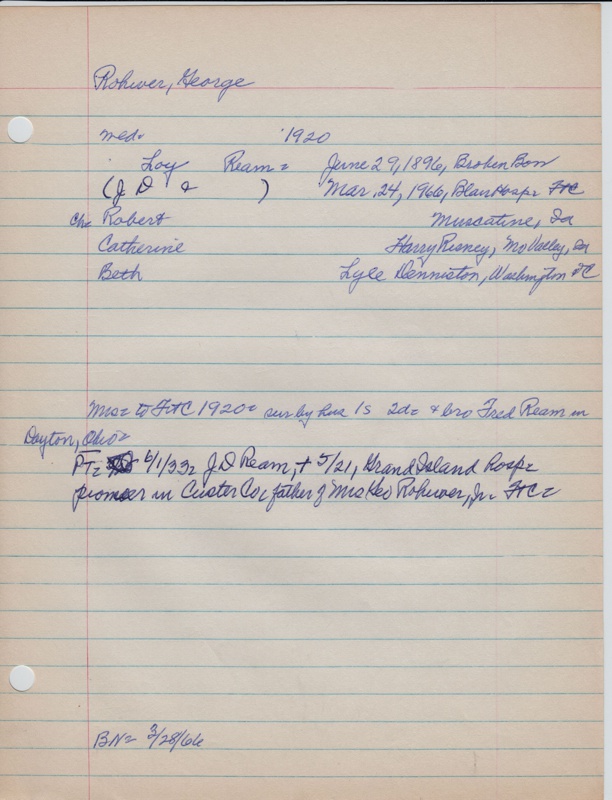 Rohwer, George
med= 1920
Loy Ream= June 29, 1896, Broken Bow
(J D & ) Mar. 24, 1966, Blair Hosp= FtC
Ch= Robert Muscatine, Ia
Catherine Harry Risney, Mo Valley, Ia
Beth Lyle Denniston, Washington DC
Mrs= to FtC 1920= sur by hus 1s 2d= & bro Fred Ream in
Dayton, Ohio=
PT= 6/1/33= J D Ream, + 5/21, Grand Island hosp=
pioneer in Custer Co, father of Mrs Geo Rohwer, Jr= FtC=
BN= 3/28/66